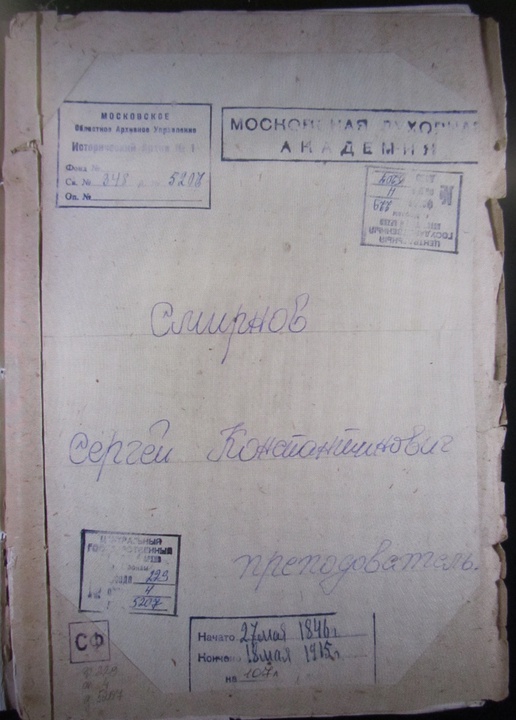 МОСКОВСКОЕ
Областное Архивное Управление
Исторический Архив № 1
Фонд №
Св. № 348 5207
Оп. №
МОСКОВСКАЯ ДУХОВНАЯ
АКАДЕМИЯ
5207
4
229
ГОСУДАРСТВЕННЫЙ
ЦЕНТРАЛЬНЫЙ
Смирнов
Сергей Константинович
преподователь.
ЦЕНТРАЛЬНЫЙ
ГОСУДАРСТВЕННЫЙ
229
4
5207
СФ
Начато 27 мая 1846 г
Кончено 18 мая 1915 г.
на 107 л
ф 229
5207